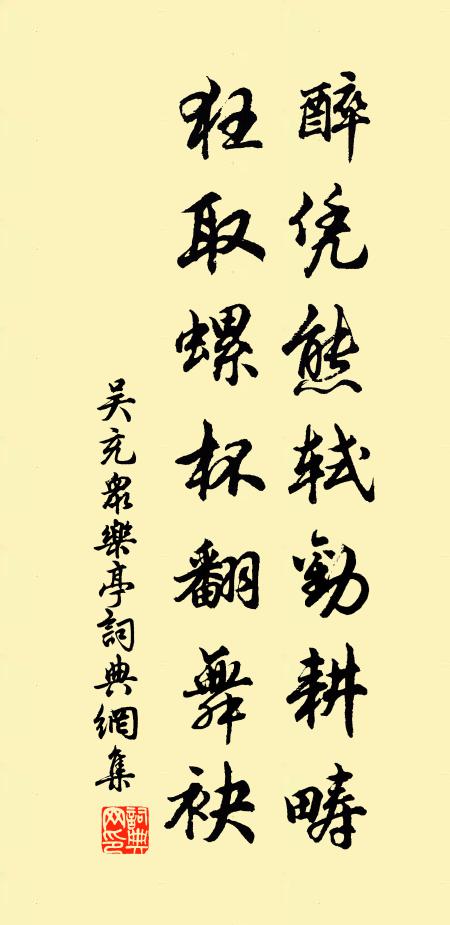 醉凭熊轼勸耕疇
狂取螺杯翻舞袂
吴充衆樂亭詞典網集
詞典網印